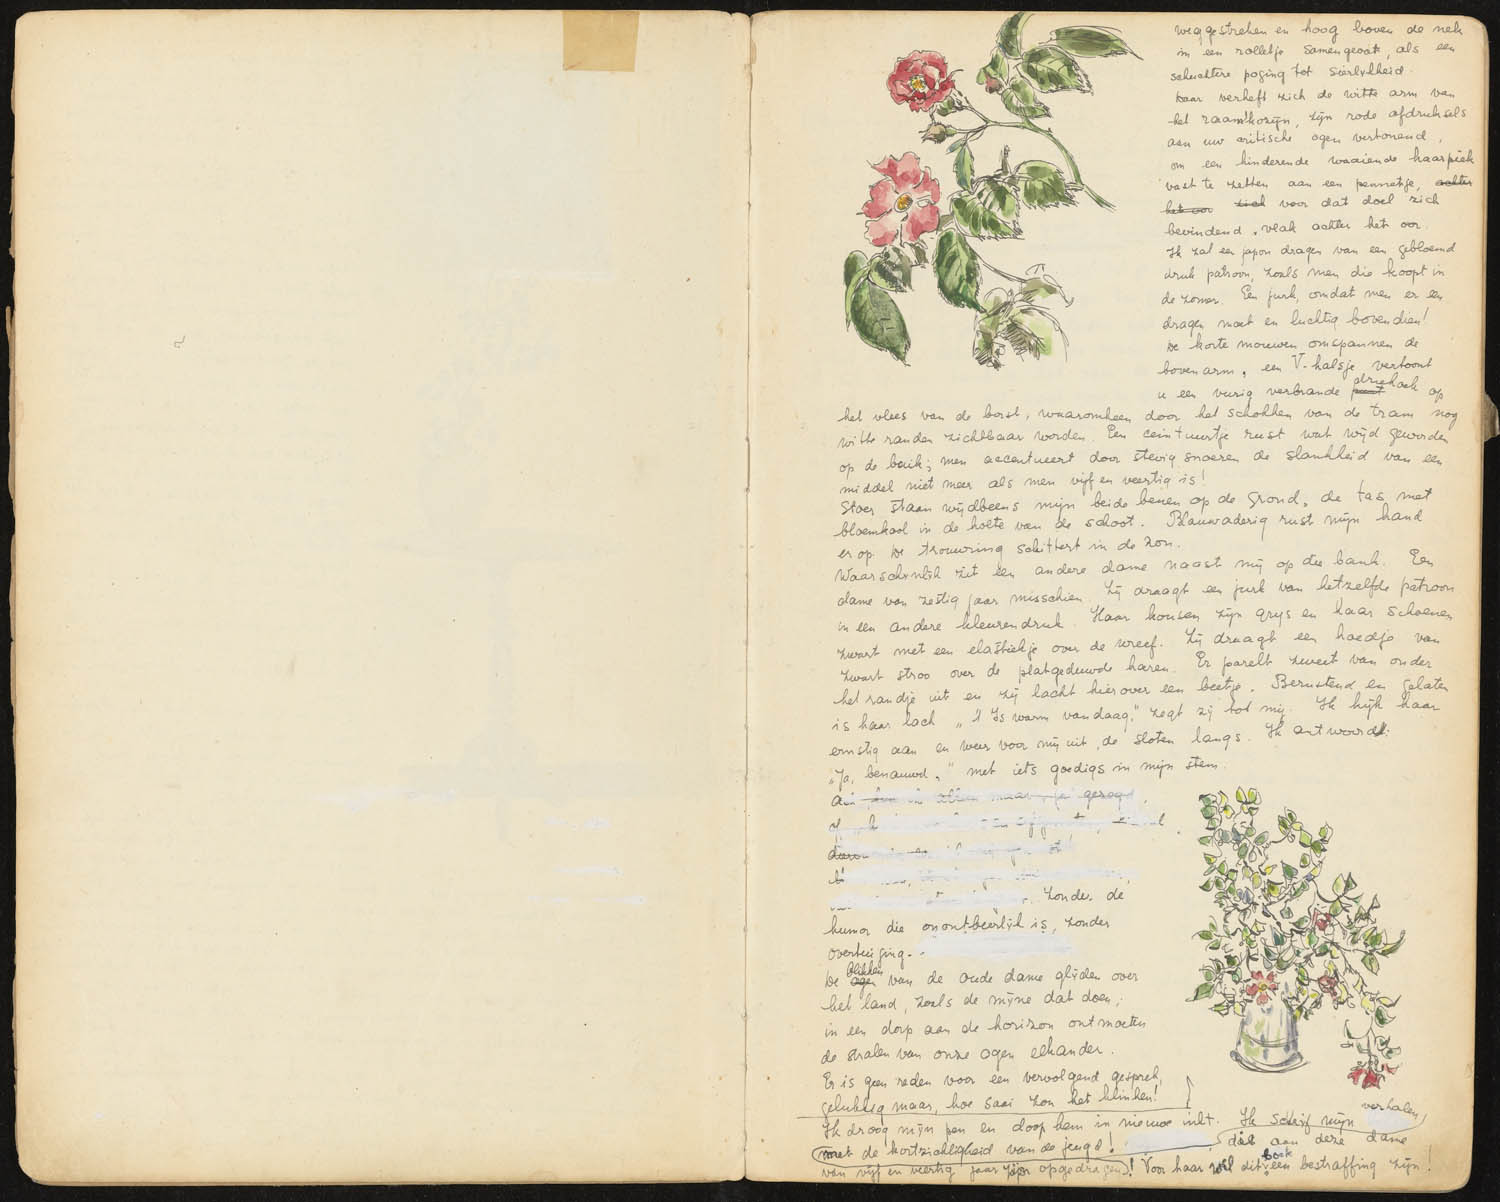 weggestreken en hoog boven de nek
in een rolletje samengeoat, als een
schuchtere poging tot sierlykheid.
Daar verheft zich de witte arm van
het raamkozijn, zijn rode afdruksels
aan uw critische ogen vertonend,
om een hinderende waaiende haarpiek
vast te zetten aan een pennetje, achter
het oor zich voor dat doel zich
bevindend, vlak achter het oor.
Ik zal een japon dragen van een gebloemd
druk patroon, zoals men die koopt in
de zomer. Een jurk, omdat men er een
dragen moet en luchtig bovendien!
De korte mouwen omspannen de
bovenarm, een V-halsje vertoont
u een vurig verbrande driehoek op
het vlees van de borst, waaromheen door het schokken van de tram nog
witte randen zichtbaar worden. Een ceintuurtje rust wat wijd geworden
op de buik; men accentueert door stevig snoeren de slankheid van een
middel niet meer als men vijf en veertig is!
Stoer staan wijdbeens mijn beide benen op de grond, de tas met
bloemkool in de holte van de schoot. Blauwaderig rust mijn hand
er op. De trouwring schittert in de zon.
Waarschynlijk zit een andere dame naast mij op die bank. Een
dame van zestig jaar misschien. Zij draagt een jurk van hetzelfde patroon
in een andere kleurendruk. Haar kousen zijn grijs en haar schoenen
zwart met een elastiekje over de wreef. Zij draagt een hoedje van
zwart stroo over de platgeduwde haren. Er parelt zweet van onder
het randje uit en zij lacht hierover een beetje. Berustend en gelaten
is haar lach „'t Is warm vandaag," zegt zij tot mij. Ik kijk haar
ernstig aan en weer voor mij uit, de sloten langs. Ik antwoord:
„Ja, benauwd," met iets goedigs in mijn stem.
zonder de
humor die onontbeerlijk is, zonder
overtuiging.
De blikken ogen van de oude dame glijden over
het land, zoals de mijne dat doen;
in een dorp aan de horizon ontmoeten
de stralen van onze ogen elkander.
Er is geen reden voor een vervolgend gesprek,
gelukkig maar, hoe saai zou het klinken!
Ik droog mijn pen en doop hem in nieuwe inkt. Ik schrijf mijn verhalen,
met de kortzichtigheid van de jeugd! dat aan deze dame
van vijf en veertig jaar zijn opgedragen! Voor haar zal dit boek een bestraffing zijn!